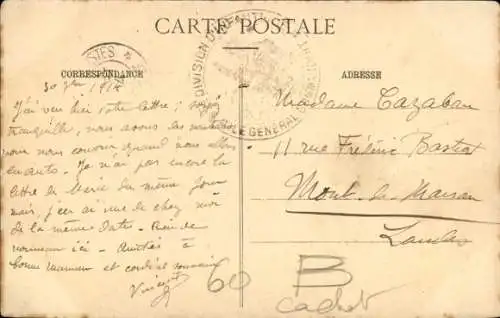 CARTE POSTALE
CORRESPONDANCE
ADRESSE
DIVISION D'INFANTERIE
GÉNÉRAL
30 1914
J'ai reçu ici votre lettre ; soyez
tranquille, nous avons les
pour nous couvrir quand nous allons
en auto. Je n'ai pas encore la
lettre de Marie du même jour
mais j'en ai une de chez moi
de la même date. Rien de
nouveau ici. Amitiés à
bonne maman et cordial souvenir
Vincent
Madame Cazaban
11 rue Frédéric Bastiat
Mont-de-Marsan
Landes
60
B
cachet